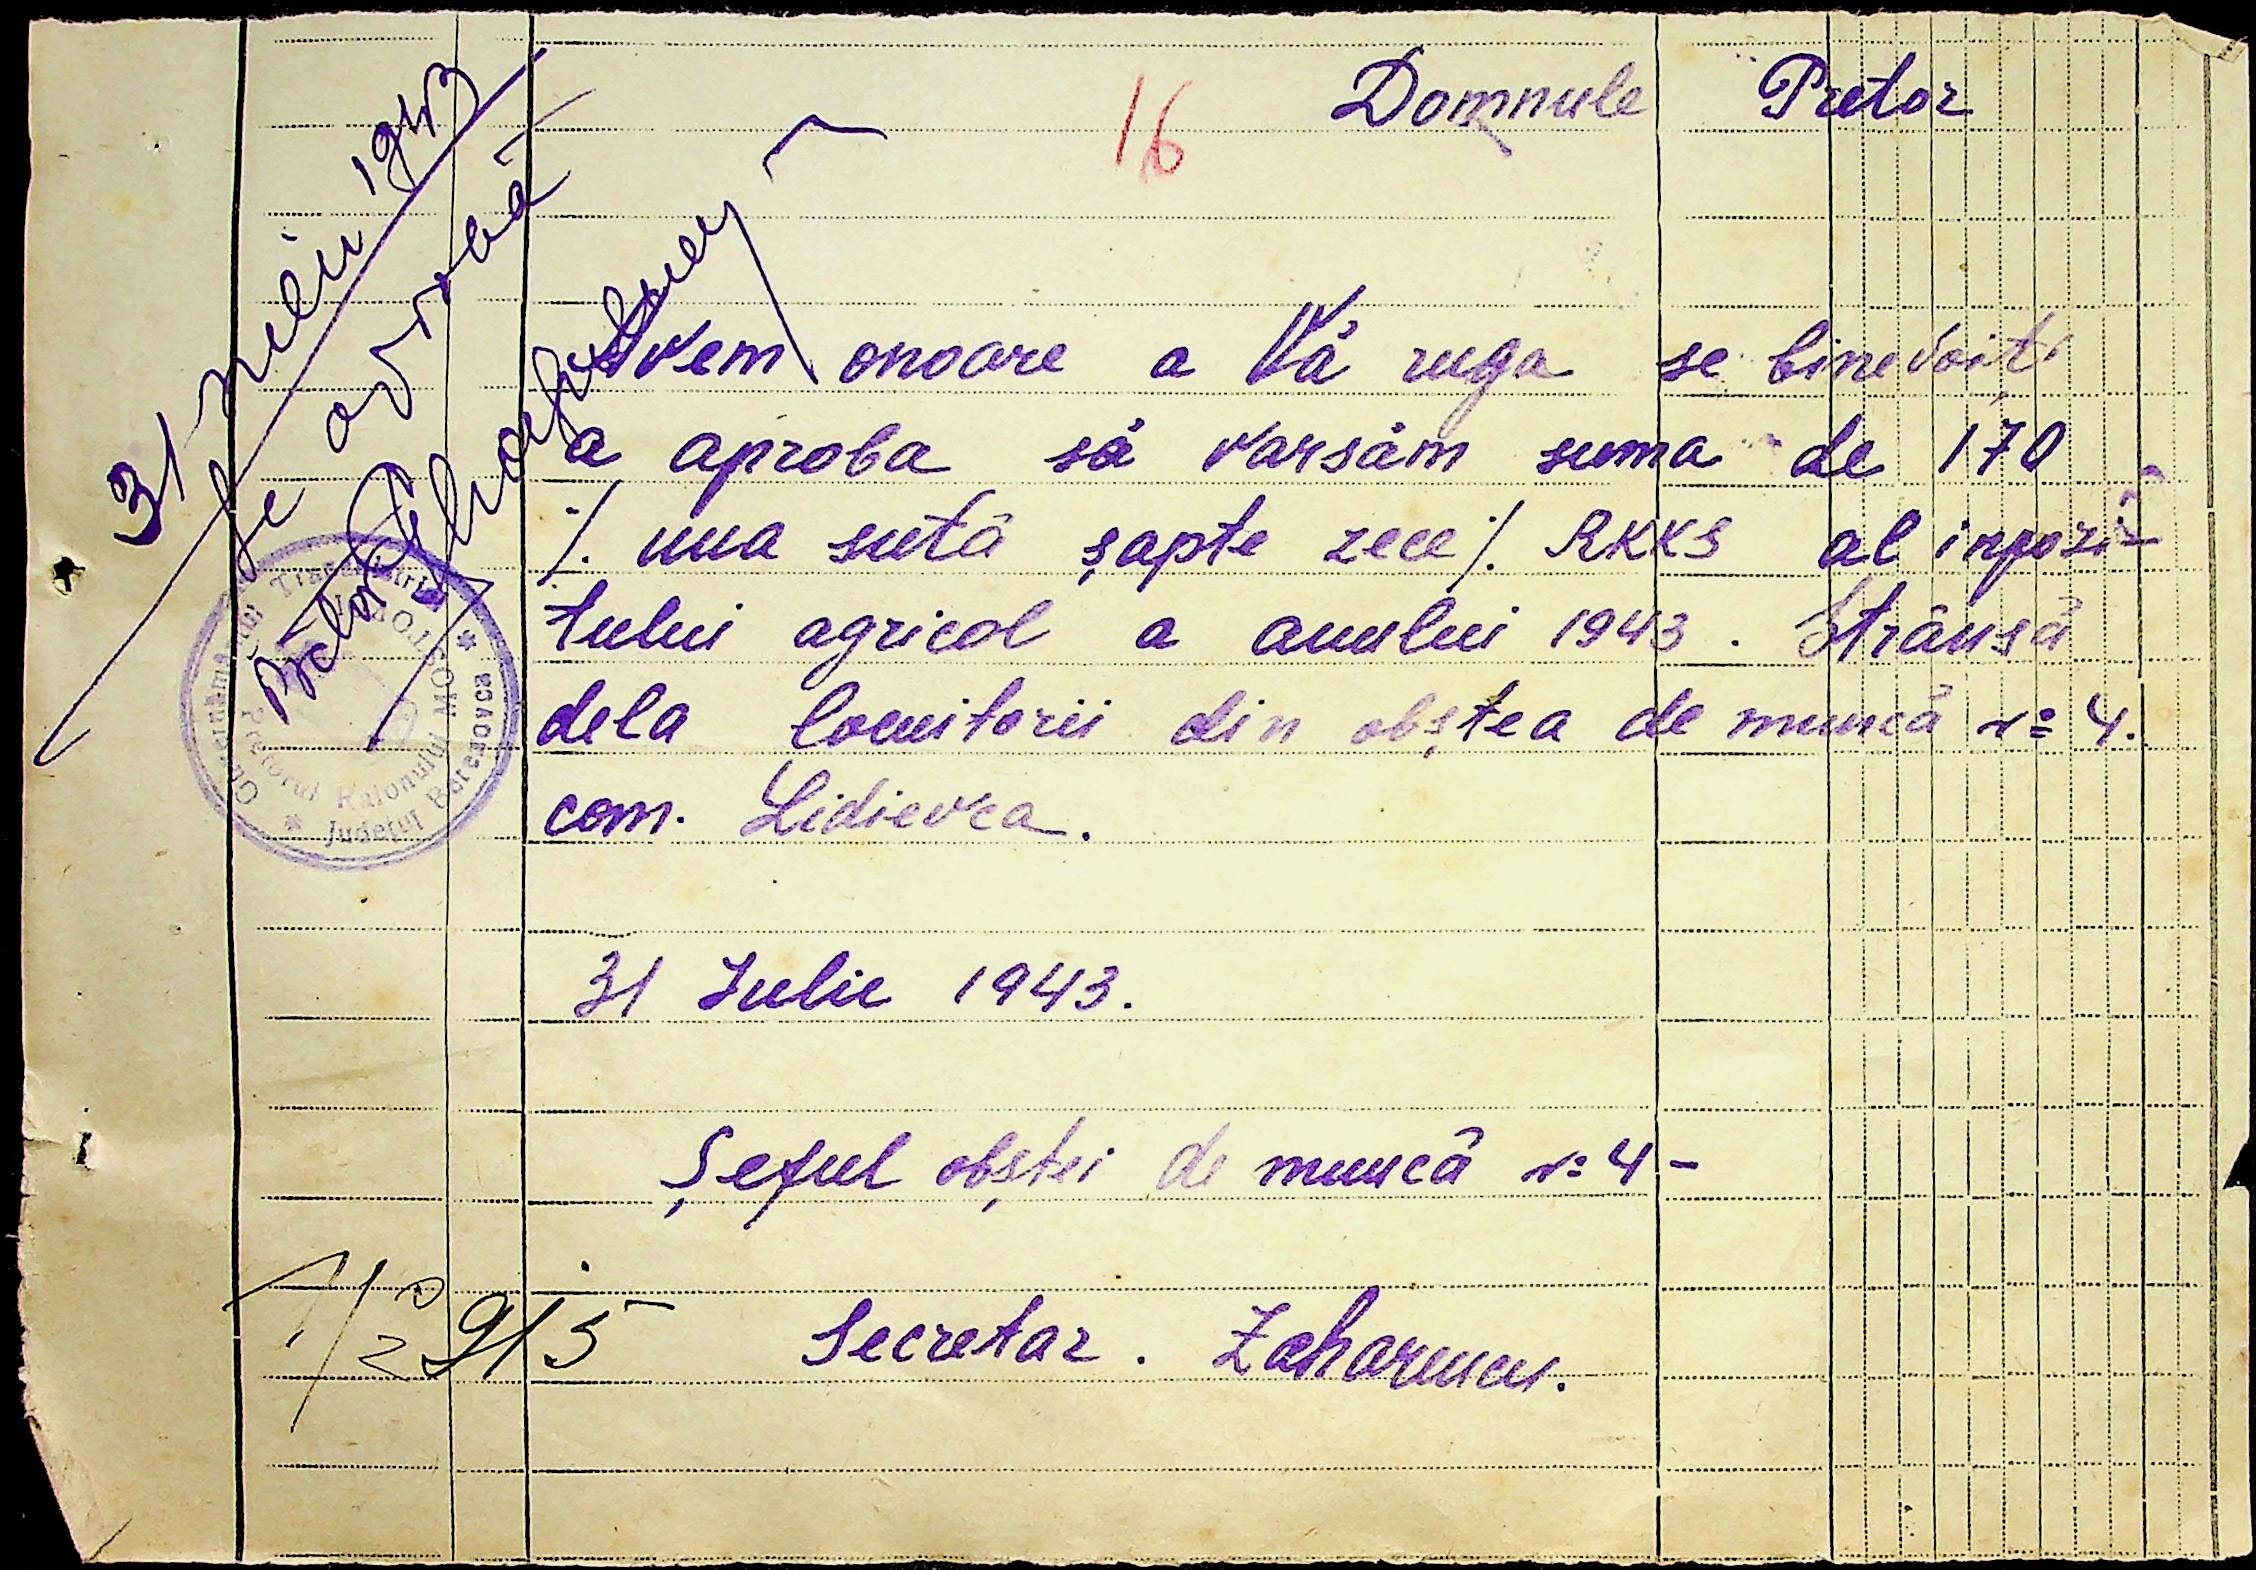 16
Domnule Pretor
Avem onoare a Vă ruga se binevoiți
a aproba să varsăm suma de 170
/. una sută șapte zece /. RKKS al inpozi-
tului agricol a anului 1943. Strânsă
dela locuitorii din obștea de muncă No 4.
com. Lidievca.
31 Iulie 1943.
Șeful obștei de muncă No 4 -
Secretar. Zaharencu.
31 Iulie 1943
Se aprobă
Pretor
Guvernământul Transnistriei
* Județul Berezovca *
Pretorul Raionului MOSTOVOI
2915